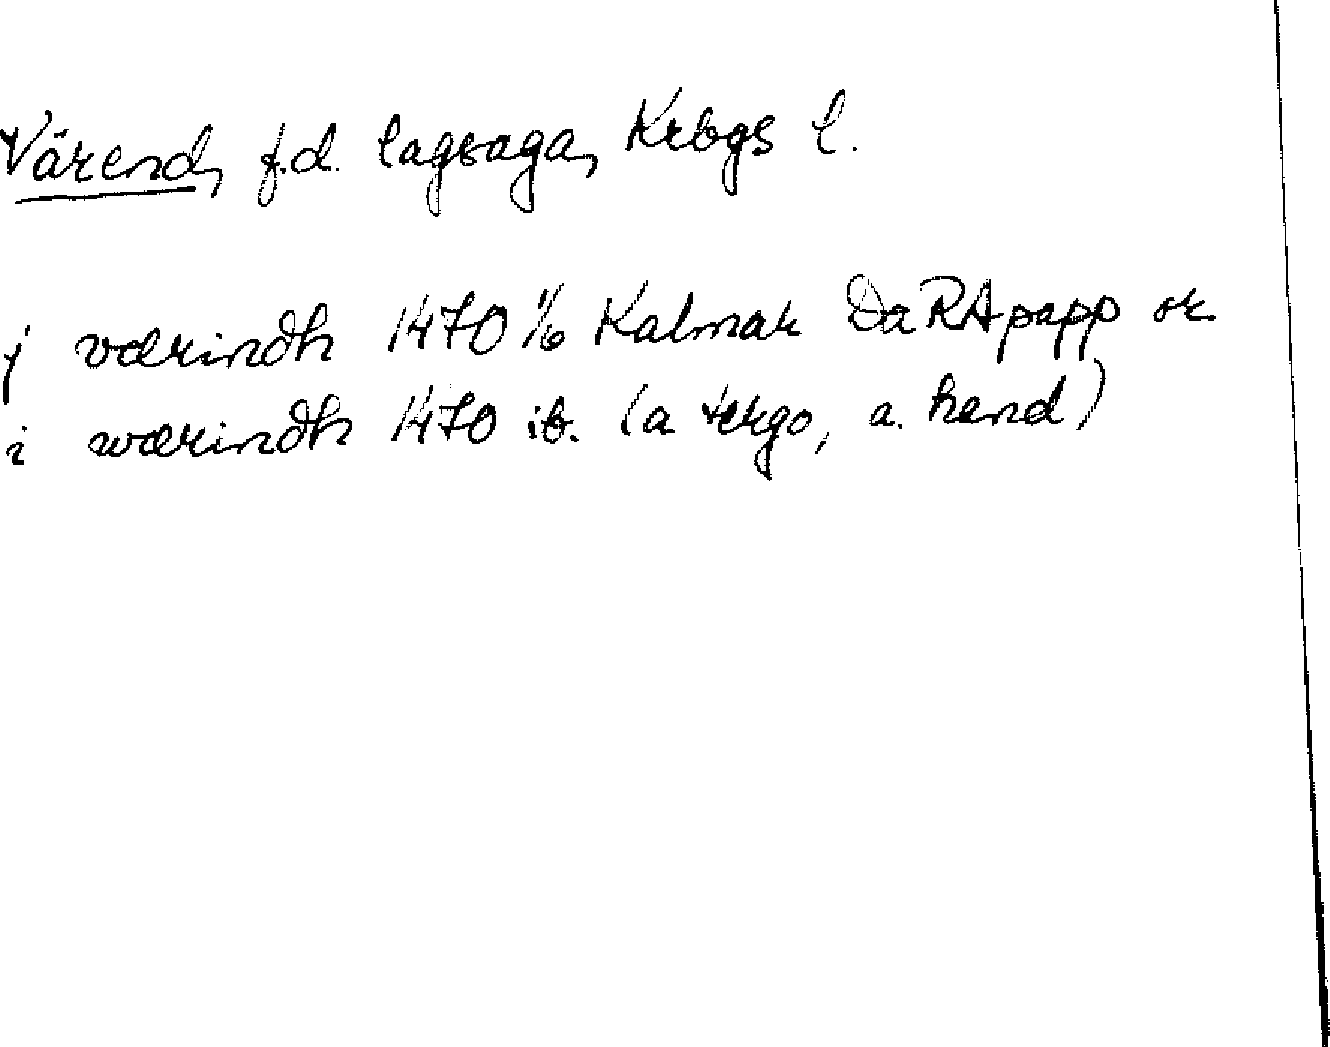 Värend, f.d. lagsaga, Krbgs l.
j værindh 1470 11/6 Kalmar DaRApapp or
i wærindh 1470 ib. (a tergo, a. hand)